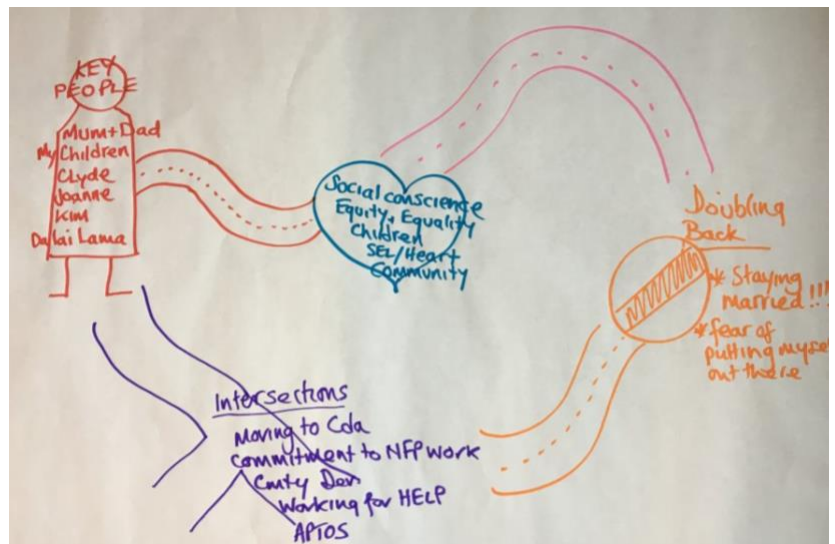 KEY
PEOPLE
Mum+Dad
My Children
Clyde
Joanne
Kim
Dalai Lama
Social conscience
Equity, Equality
Children
SEL/Heart
Community
Doubling
Back
* Staying
married!!!
* fear of
putting myself
out there
Intersections
Moving to Cda
Commitment to NFP work
Cmty Dev
Working for HELP
APTOS